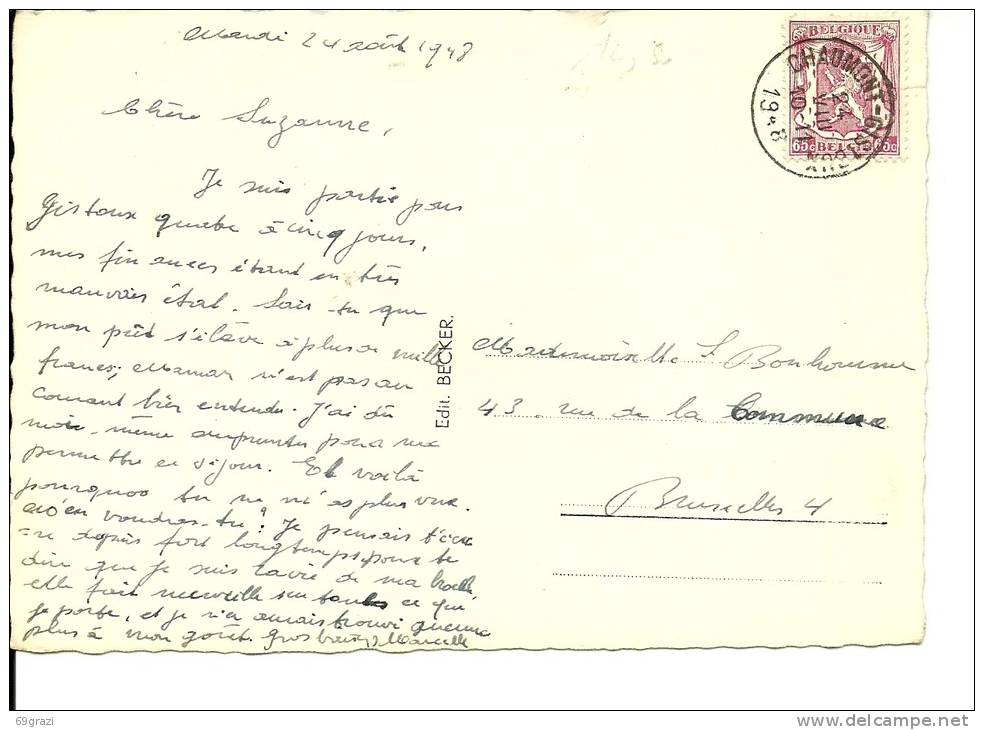 Mardi 24 août 1948
Chère Suzanne,
Je suis partie pour
Gistoux quatre à cinq jours,
mes finances étant en très
mauvais état. Sais-tu que
mon prêt s'élève à plus de mille
francs, Maman n'est pas au
courant bien entendu. J'ai dû
moi-même emprunter pour me
permettre ce séjour. Et voilà
pourquoi tu ne m'as plus vue.
M'en voudras-tu? Je pensais t'écri
=re depuis fort longtemps pour te
dire que je suis ravie de ma
elle fait merveille sur toutes ce que
je porte, et je n'en aurais trouvé aucune
plus à mon goût. Gros baisers Marcelle
Edit. BECKER.
BELGIQUE
65c BELGIE 65c
CHAUMONT-GISTOUX
24
VIII
10-11
1948
Mademoiselle S Bonhomme
43, rue de la Commune
Bruxelles 4
69grazi
delcampe.net